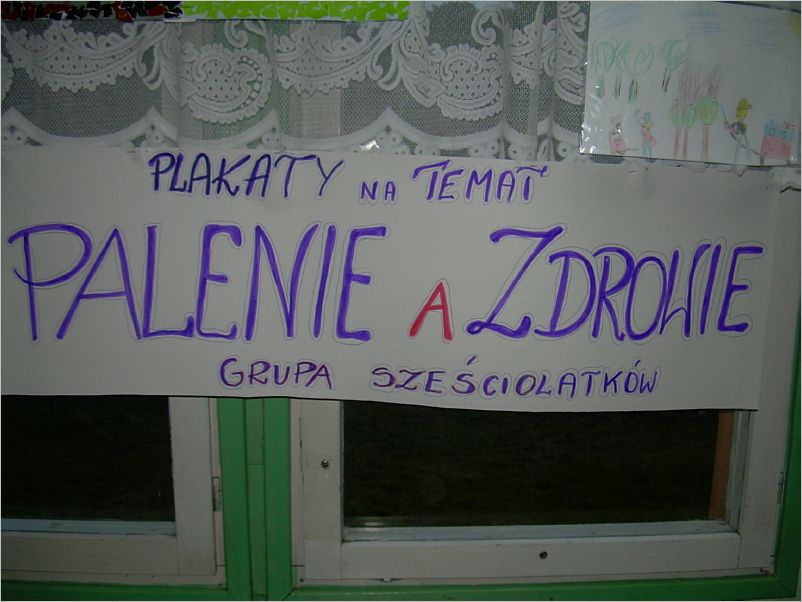 PLAKATY NA TEMAT
PALENIE A ZDROWIE
GRUPA SZEŚCIOLATKÓW